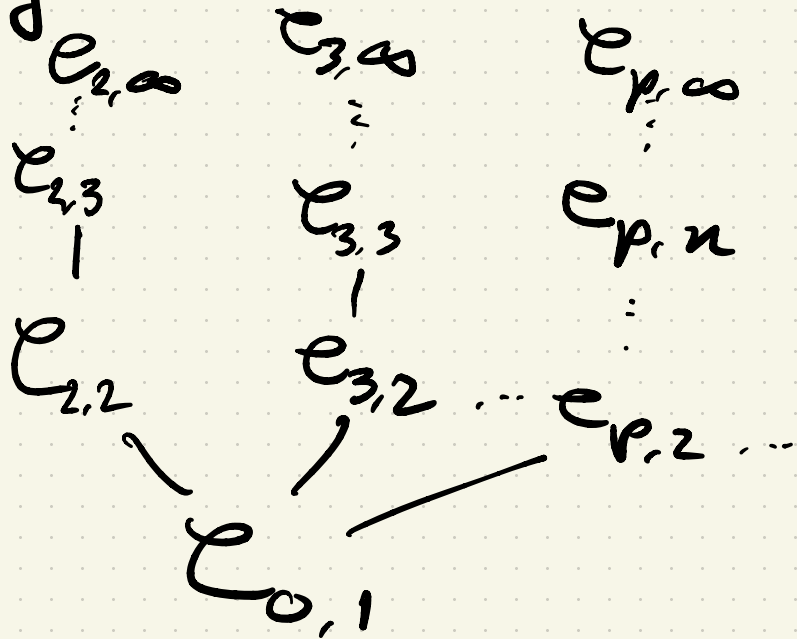 𝒞_{2,∞} 𝒞_{3,∞} 𝒞_{p,∞}
⋮ ⋮ ⋮
𝒞_{2,3} 𝒞_{3,3} 𝒞_{p,n}
| | ⋮
𝒞_{2,2} 𝒞_{3,2} ... 𝒞_{p,2} ...
𝒞_{0,1}